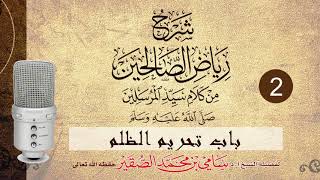 شرح
رياض الصالحين
من كلام سيد المرسلين
صلى الله عليه وسلم
2
باب تحريم الظلم
لفضيلة الشيخ أ.د سامي بن محمد الصقير حفظه الله تعالى